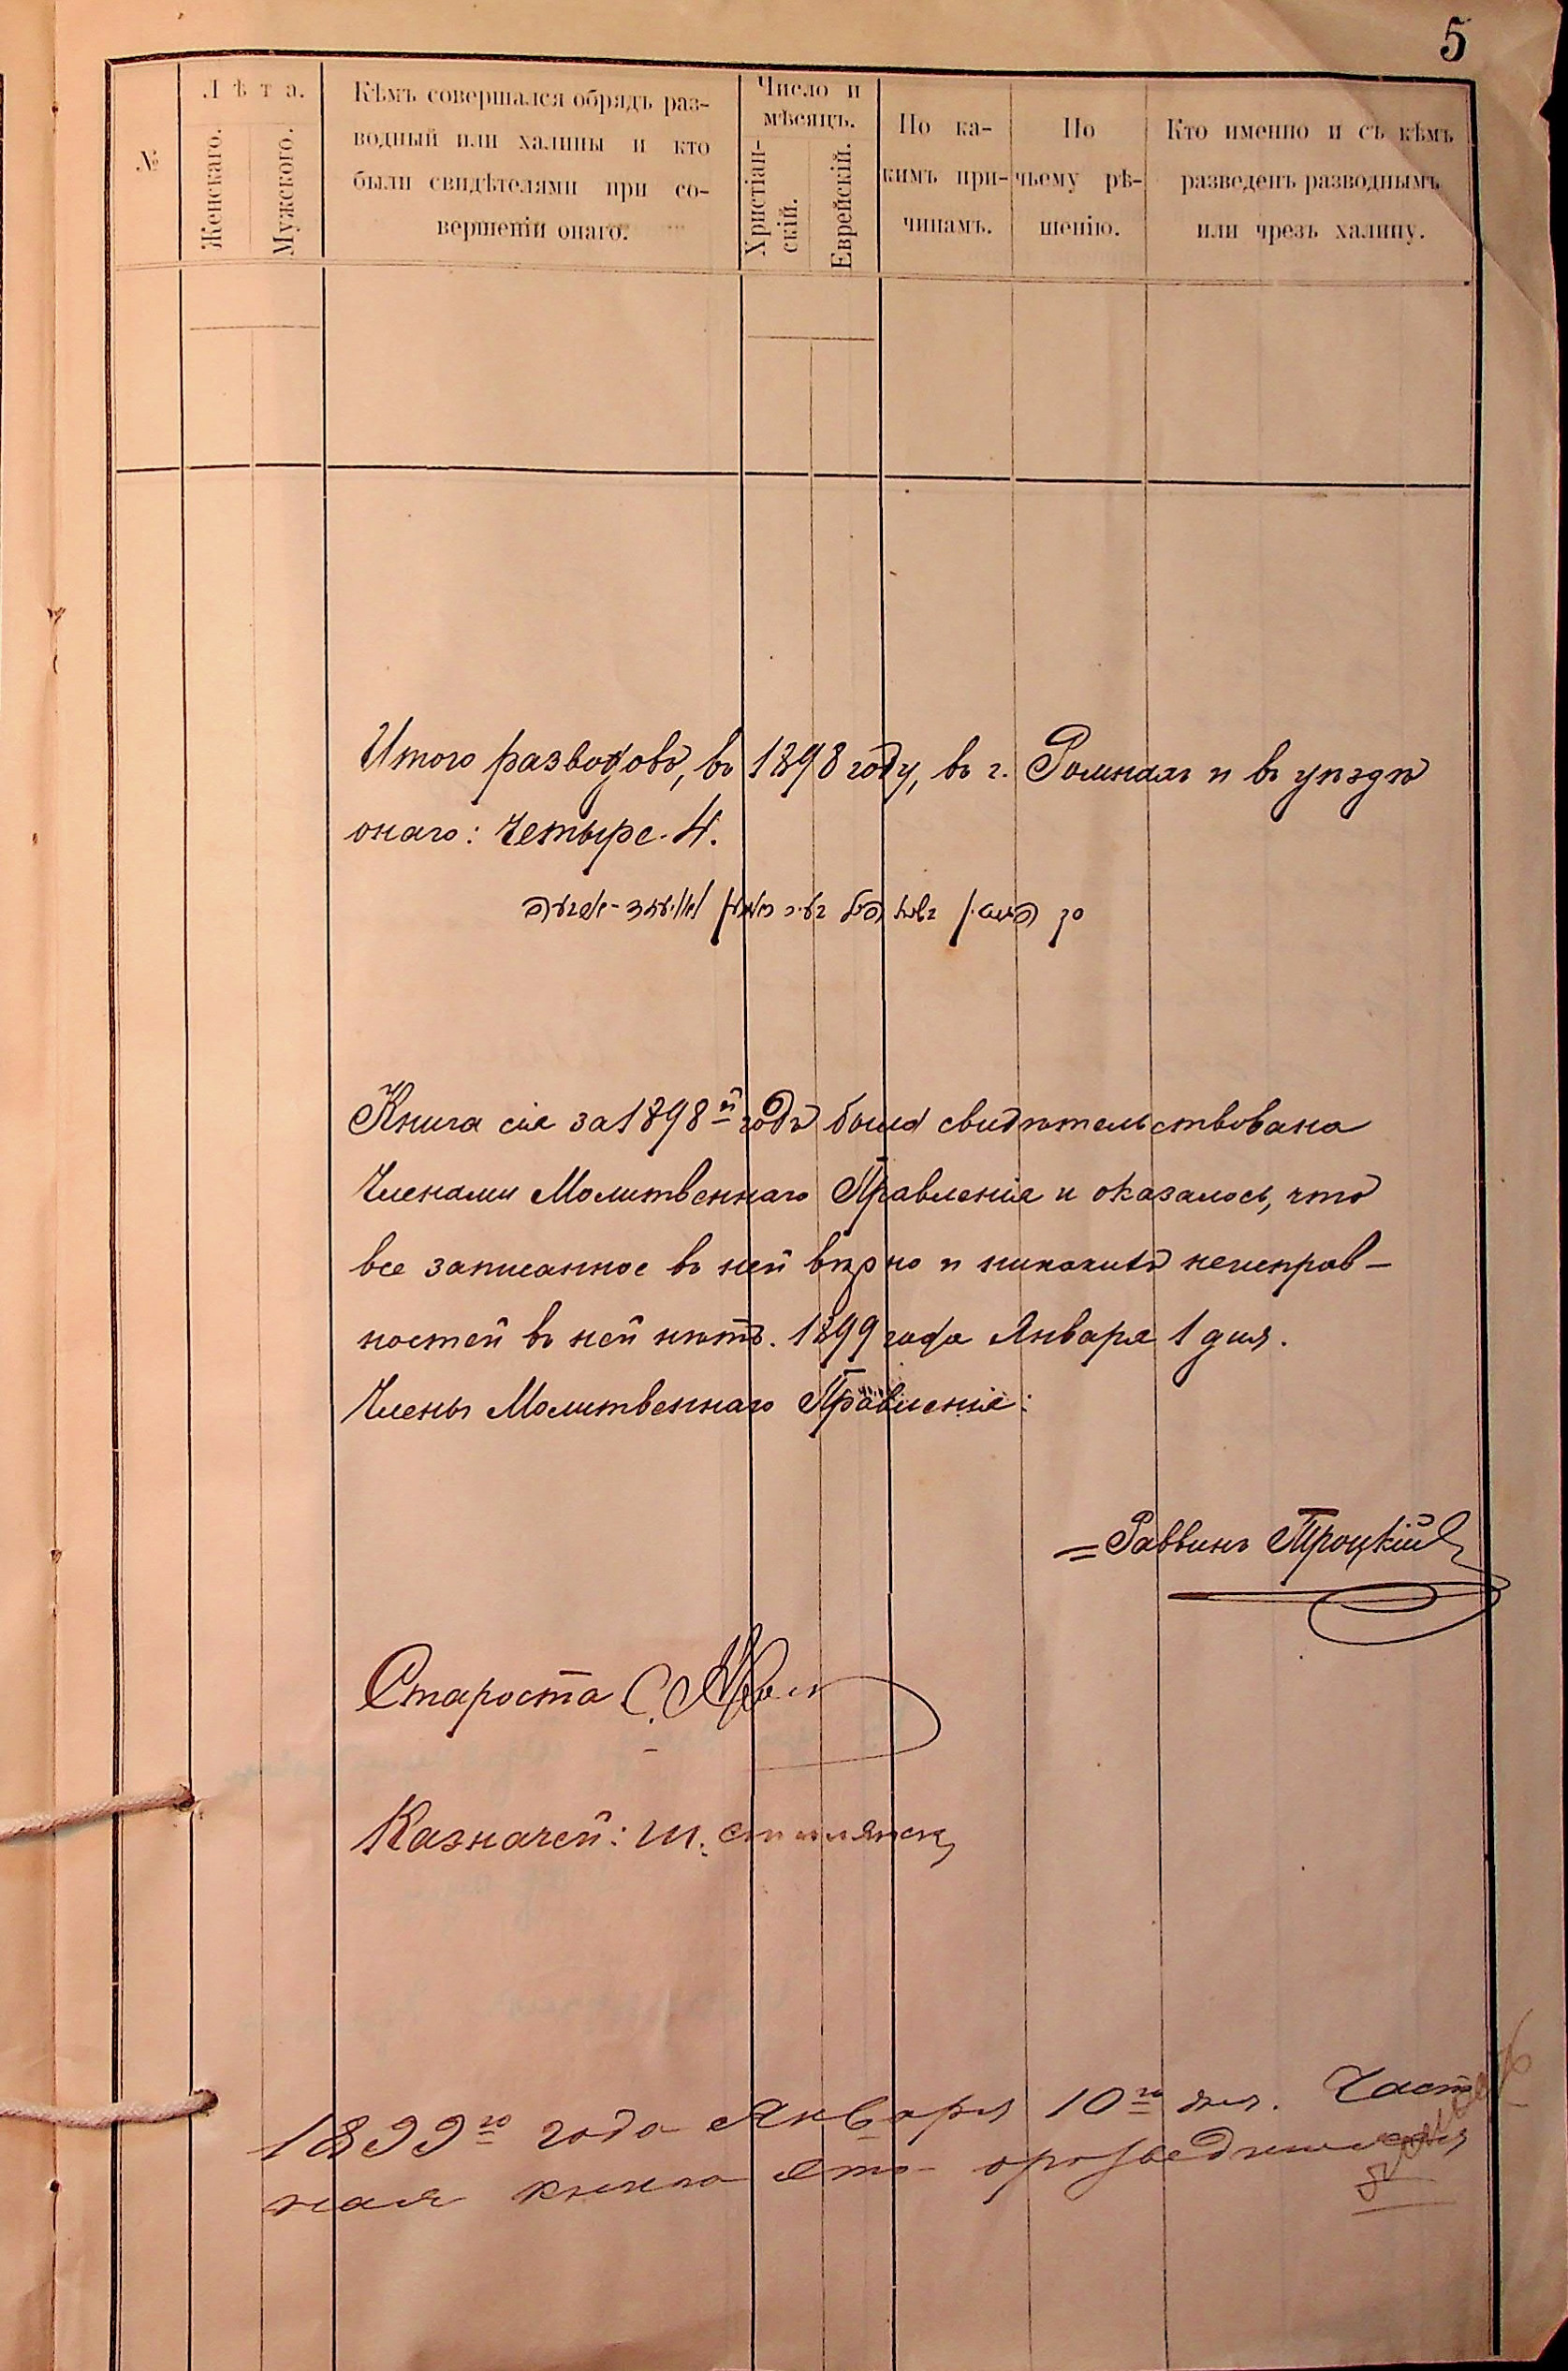 5
№
Лѣта.
Женскаго.
Мужского.
Кѣмъ совершался обрядъ раз-
водный или халицы и кто
были свидѣтелями при со-
вершеніи онаго.
Число и
мѣсяцъ.
Христіан-
скій.
Еврейскій.
По ка-
кимъ при-
чинамъ.
По
чьему рѣ-
шенію.
Кто именно и съ кѣмъ
разведенъ разводнымъ
или чрезъ халицу.
Итого разводовъ, въ 1898 году, въ г. Ромнахъ и въ уѣздѣ
онаго: Четыре. 4.
Книга сія за 1898й годъ была свидѣтельствована
Членами Молитвеннаго Правленія и оказалось, что
все записанное въ ней вѣрно и никакихъ неисправ-
ностей въ ней нѣтъ. 1899 года Января 1 дня.
Члены Молитвеннаго Правленія:
Раввинъ Троцкій
Староста С.
Казначей: Ш.
1899го года Января 10го дня. Част
ная книга